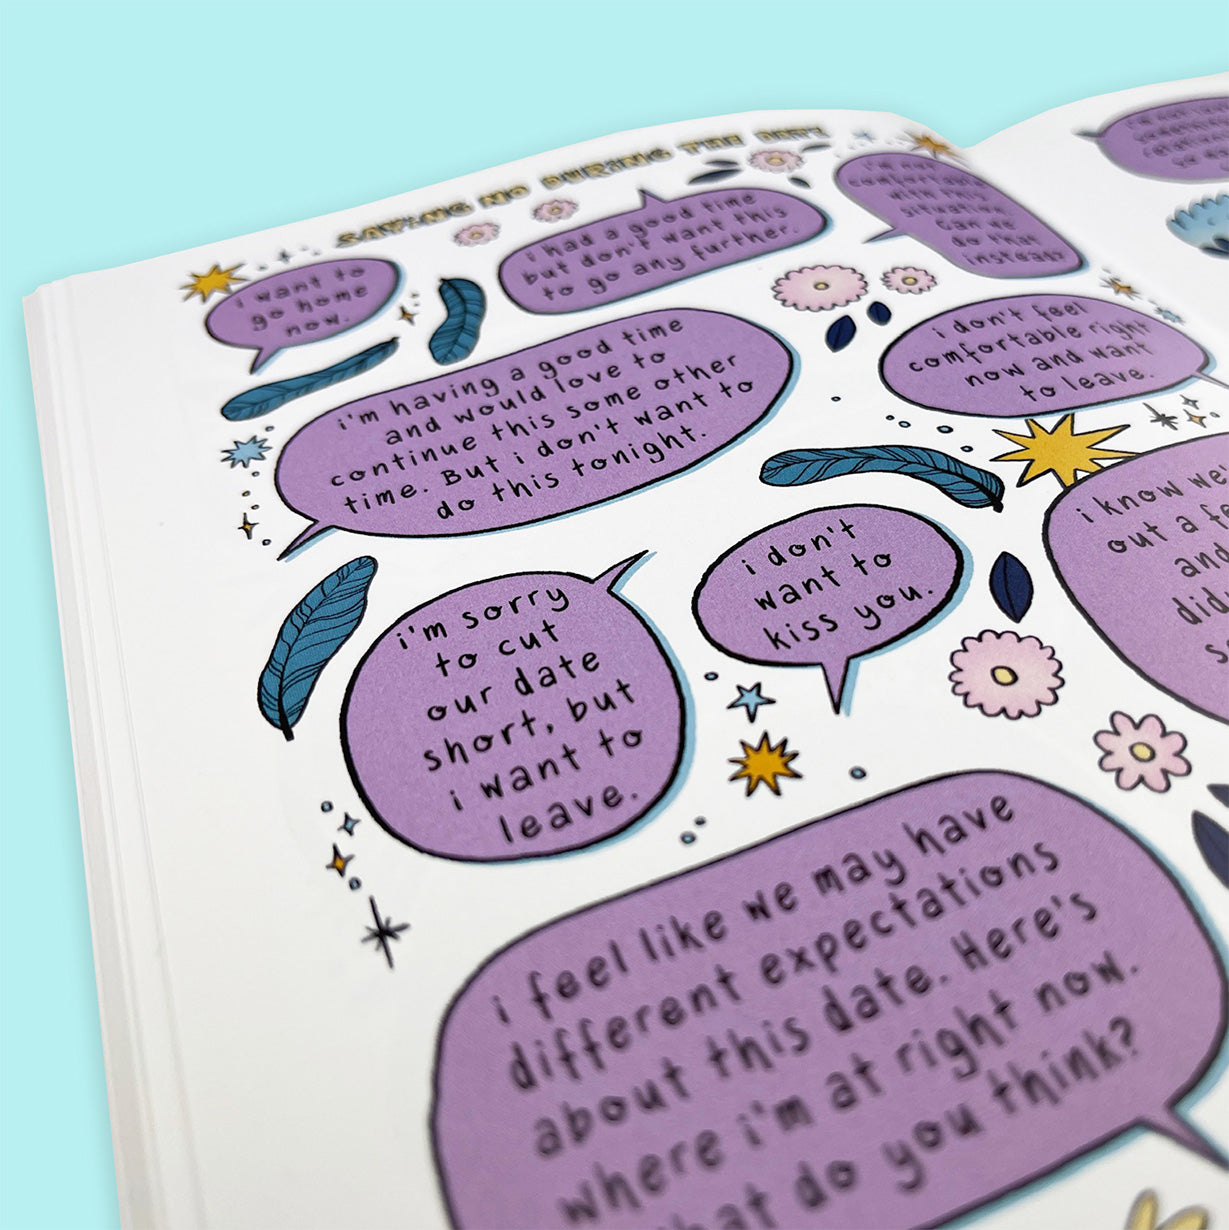 SAYING NO DURING THE DATE
i want to
go home
now.
i had a good time
but don't want this
to go any further.
i'm not
comfortable
with this
situation.
can we
do that
instead?
i'm having a good time
and would love to
continue this some other
time. But i don't want to
do this tonight.
i don't feel
comfortable right
now and want
to leave.
i'm sorry
to cut
our date
short, but
i want to
leave.
i don't
want to
kiss you.
i know we
out a
and
i feel like we may have
different expectations
about this date. Here's
where i'm at right now.
what do you think?